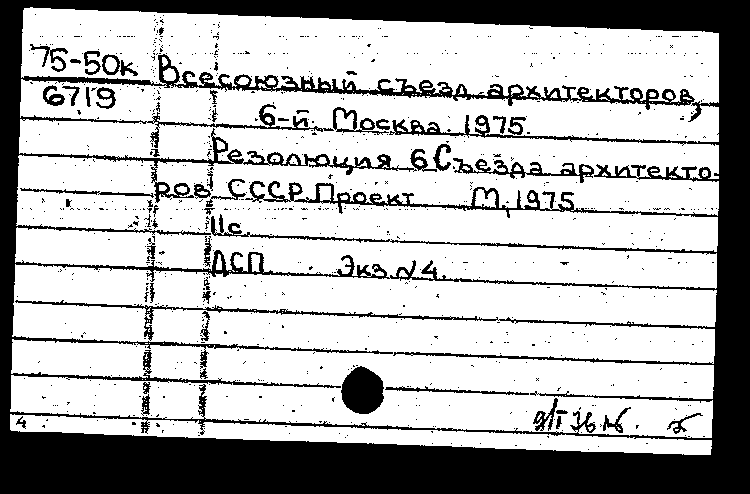 75-50к Всесоюзный съезд архитекторов,
6719 6-й. Москва. 1975.
Резолюция 6 Съезда архитекто-
ров СССР. Проект М, 1975.
11с.
ДСП. Экз. N 4.
9/II 76
4